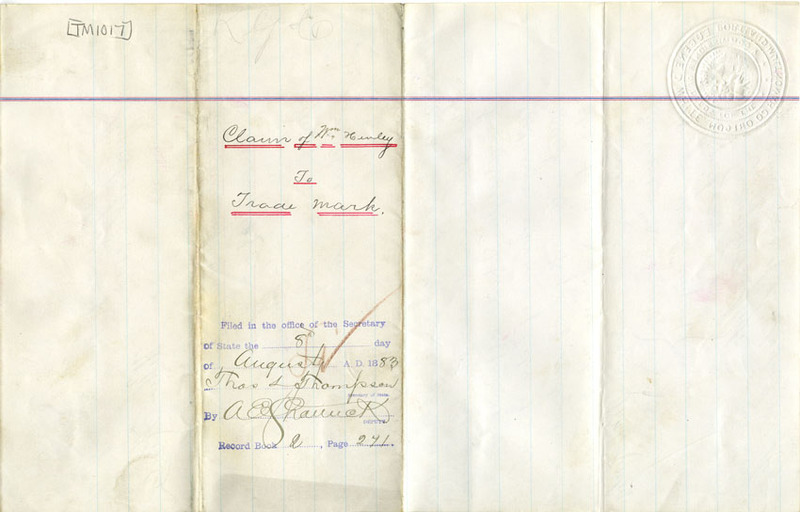 [TM1017]
Claim of Wm Henley
To
Trade Mark.
Filed in the office of the Secretary
of State the 8th day
of August A.D. 1883
Thos L Thompson
Secretary of State
By A E Shattuck
DEPUTY
Record Book 2, Page 271.